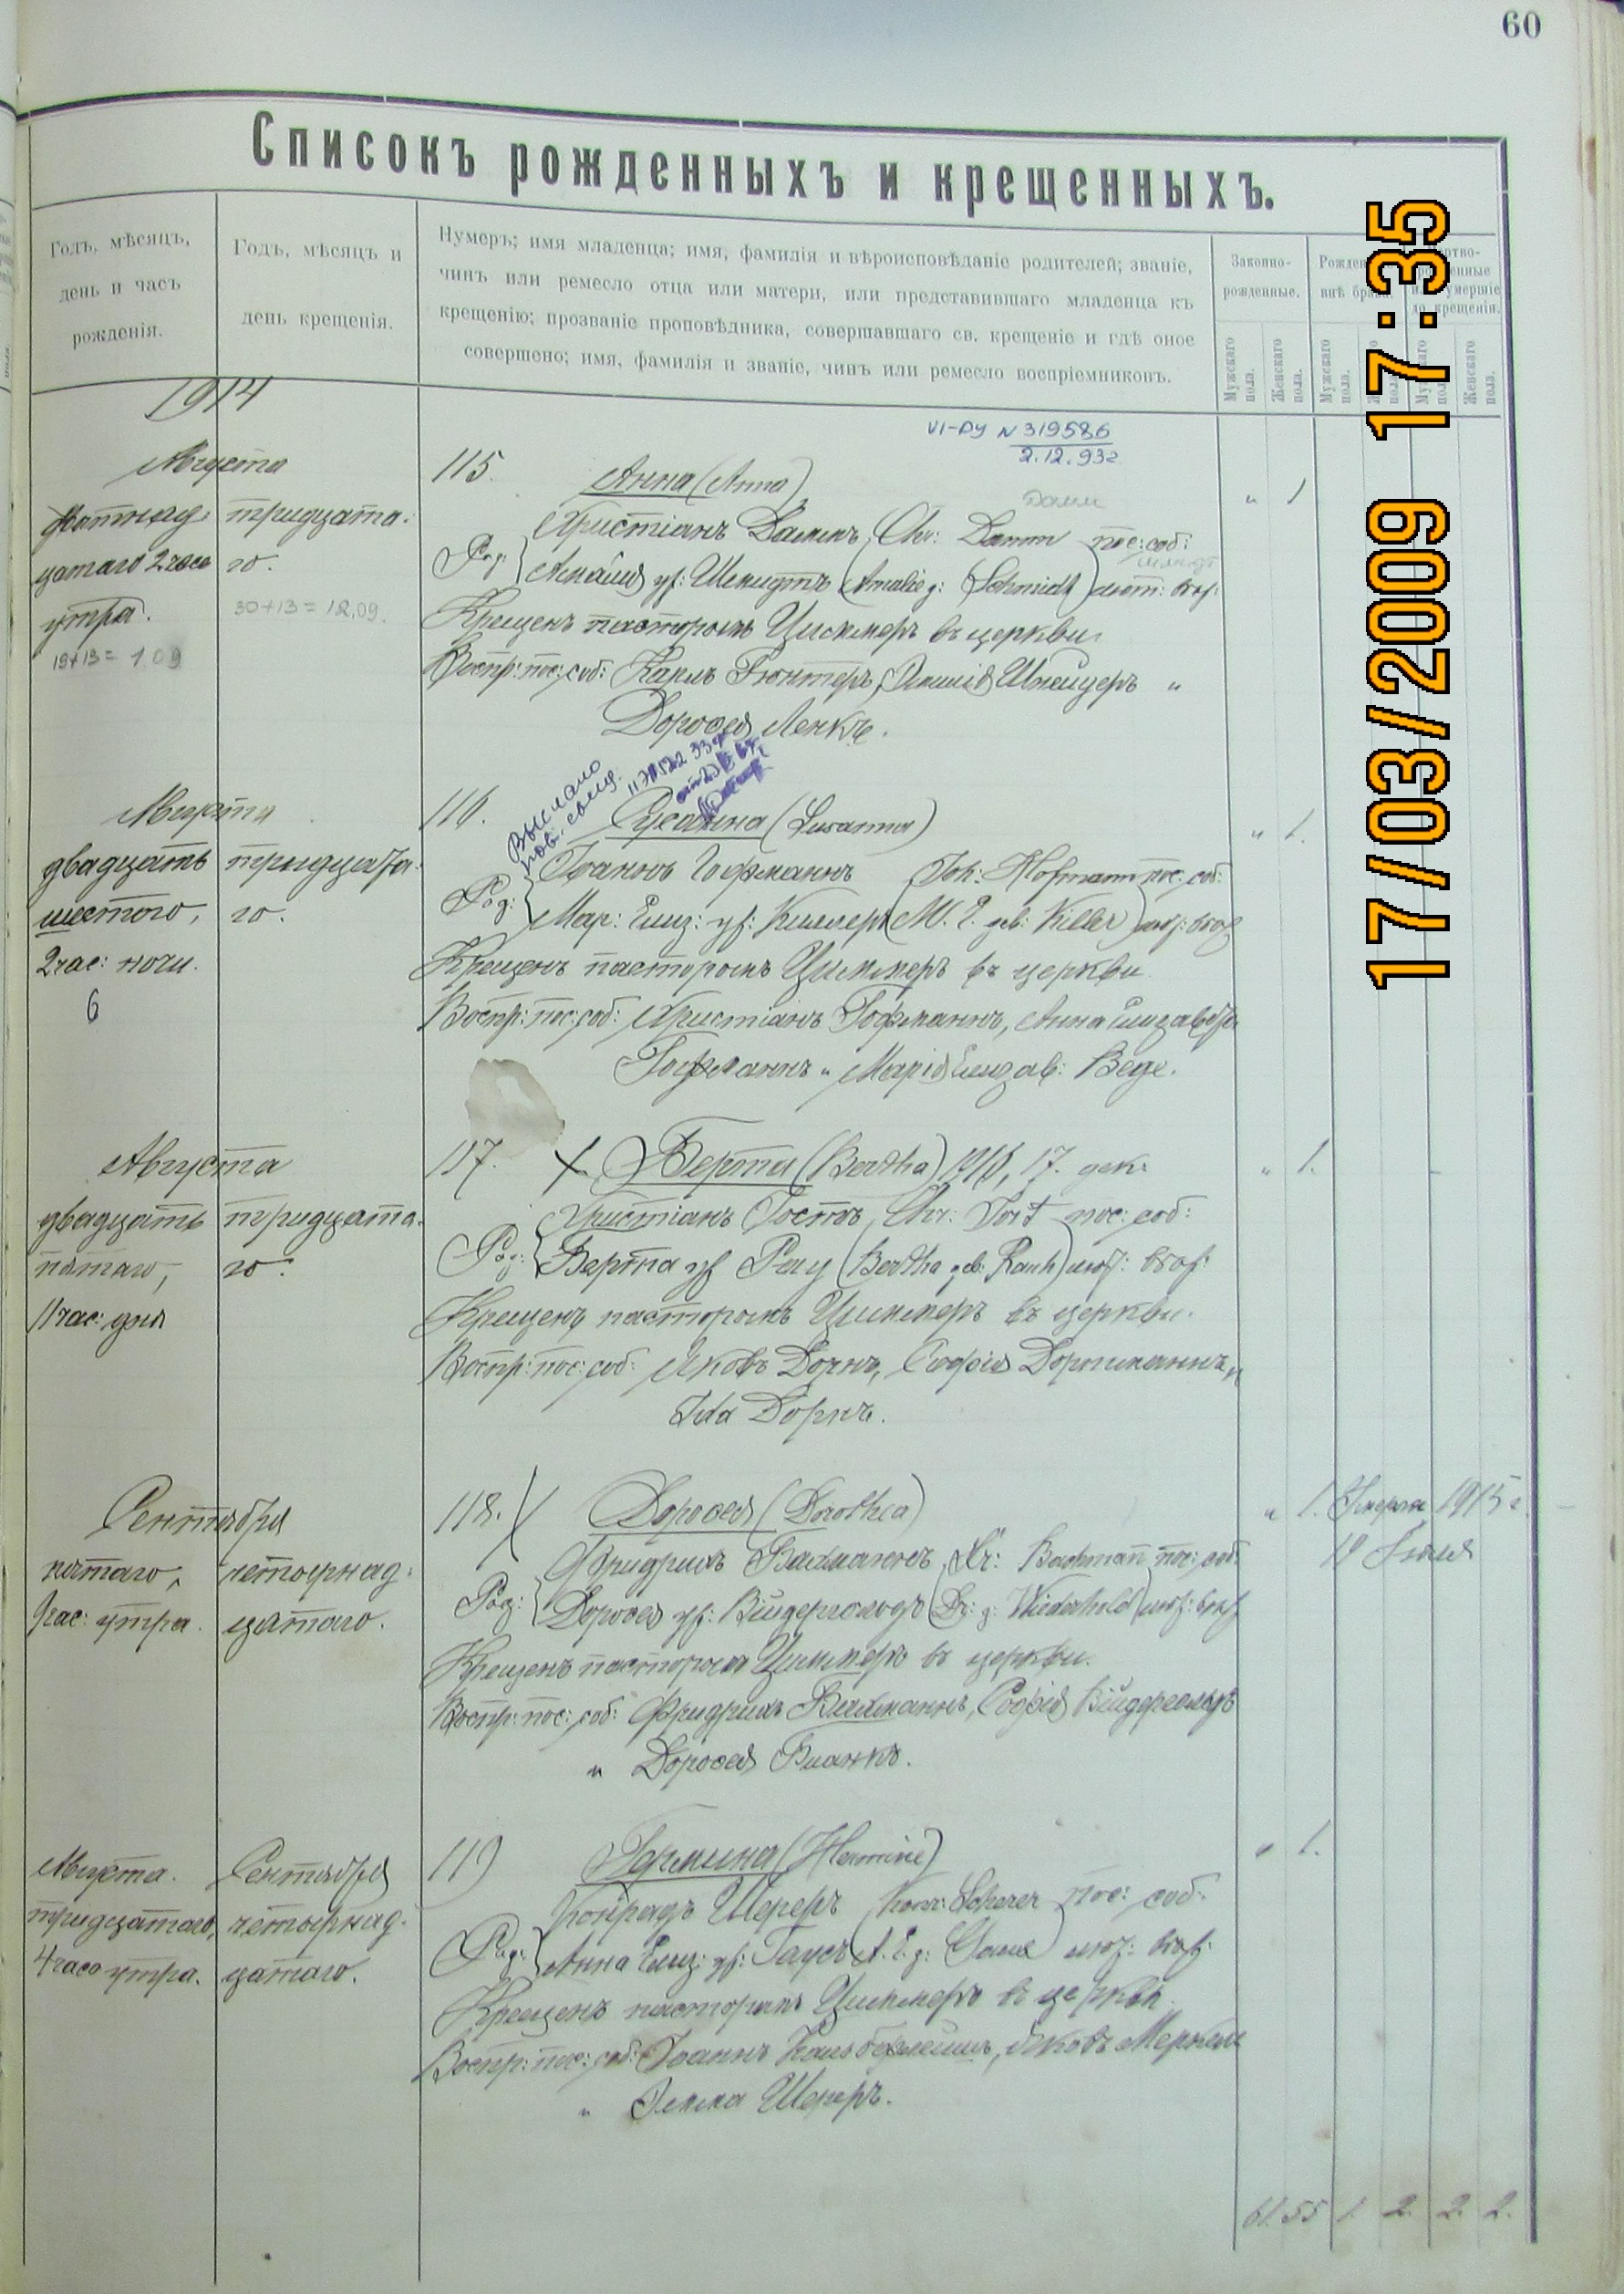 60
Списокъ рожденныхъ и крещенныхъ.
Годъ, мѣсяцъ, день и часъ рожденія.
Годъ, мѣсяцъ и день крещенія.
Нумеръ; имя младенца; имя, фамилія и вѣроисповѣданіе родителей; званіе,
чинъ или ремесло отца или матери, или представившаго младенца къ
крещенію; прозваніе проповѣдника, совершавшаго св. крещеніе и гдѣ оное
совершено; имя, фамилія и званіе, чинъ или ремесло воспріемниковъ.
Законно-рожденные.
Мужскаго пола.
Женскаго пола.
Мужскаго пола.
Женскаго пола.
17/03/2009 17:35
1914
VI-РУ N 319586
2.12.93г
Августа
115. Анна (Anna) " 1
тридцата-
цатаго 2 часа го.
утра.
19+13= 1.09
30+13=12.09.
Христіанъ Даммъ (Chr: Damm пос: соб:
Род: Амалія ур: Шмидтъ (Amalie g: Schmidt) лют: вѣр:
Крещенъ пасторомъ Циммеръ въ церкви
Воспр: пос: соб: Карлъ Гюнтеръ, Эмилія Шнейдеръ "
Доротея Ленкъ.
Выслано
Августа
116. Сусанна (Susanna) " 1.
двадцать тридцата-
шестого, го.
2 час: ночи.
6
Іоаннъ Гофманнъ (Joh: Hofmann пос: соб:
Род: Мар: Елиз: ур: Киллеръ (M. E. geb: Killer) лют: вѣр
Крещенъ пасторомъ Циммеръ въ церкви
Воспр: пос: соб: Христіанъ Гофманнъ, Анна Елизавета
Гофманнъ " Марія Елизав: Веде.
Августа
117. Берта (Bertha) 1916, 17. дек. " 1.
двадцать тридцата-
пятаго, го.
11 час: дня
Христіанъ Іостъ, Chr: Jost пос: соб:
Род: Берта ур Рау (Bertha geb: Rauh) лют: вѣр:
Крещенъ пасторомъ Циммеръ въ церкви.
Воспр: пос: соб: Яковъ Дорнъ, Софія
Ida Дорнъ.
Сентября
118. Доротея (Dorothea) " 1. Умерла 1915 г.
19 Іюля
пятаго, четырнад-
час: утра. цатаго.
Фридрихъ Бахманнъ, Fr: Bachmann пос: соб:
Род: Доротея ур: Видергольдъ (Dr: g: Wiederhold) лют: вѣр
Крещенъ пасторомъ Циммеръ въ церкви.
Воспр: пос: соб: Фридрихъ Бахманнъ, Софія Видергольдъ
" Доротея Бланкъ.
Августа. Сентября
119 Гермина (Hermine) " 1.
тридцатаго, четырнад-
4 часа утра. цатаго.
Конрадъ Шереръ Konr: Scherer пос: соб:
Род: Анна Елиз: ур: Гаусъ (A. E. g: лют: вѣр:
Крещенъ пасторомъ Циммеръ въ церкви.
Воспр: пос: соб: Іоаннъ Кальбфлейшъ, Яковъ Меркель
" Эмма Шереръ.
61. 55 1. 2. 2. 2.